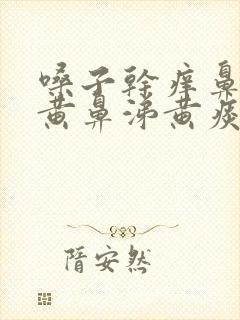 嗓子干痒鼻
黄鼻涕黄痰
隋安然